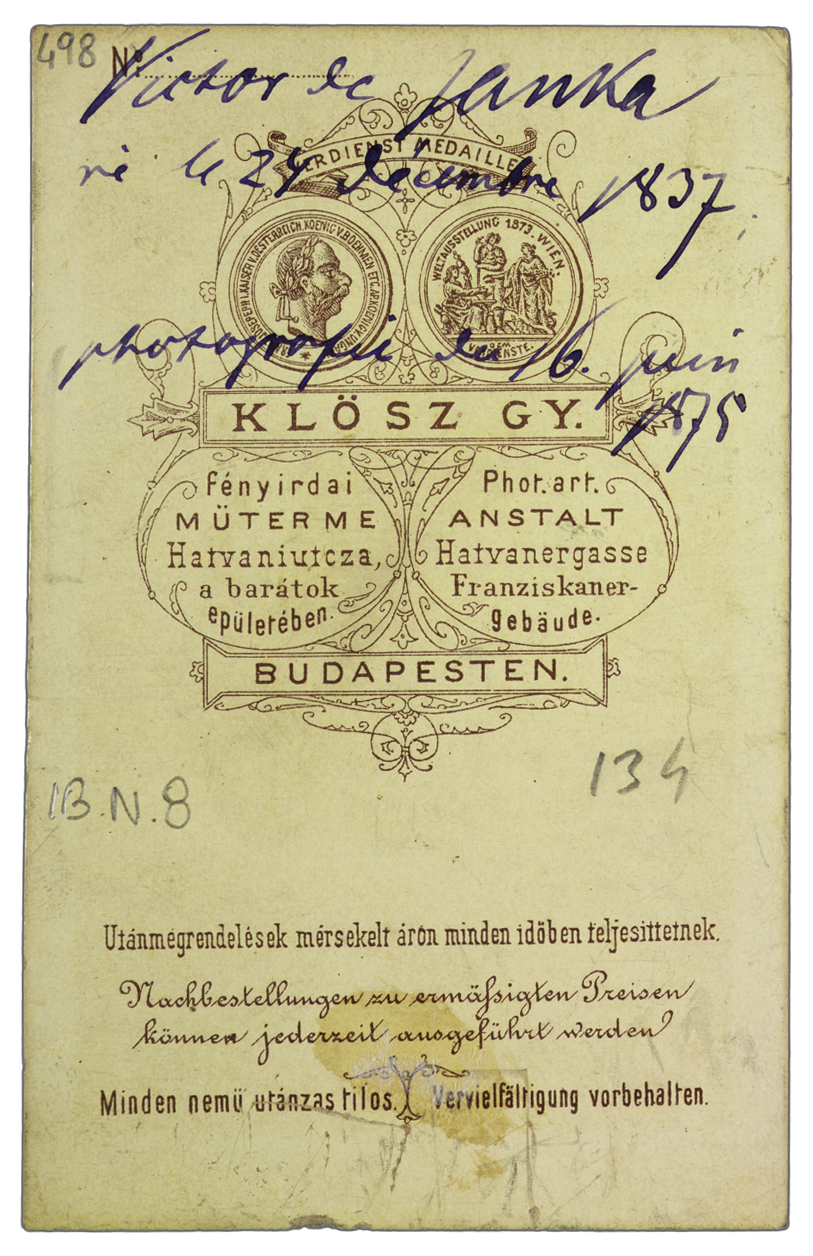 498 Nº
Victor de Janka
né le 24 décembre 1837.
VERDIENST MEDAILLE
FRANZ JOSEPH I. KAISER V. OESTERREICH, KOENIG V. BOEHMEN ETC. AP. KOENIG V. UNGARN
WELTAUSSTELLUNG 1873. WIEN.
DEM
VERDIENSTE.
photografié le 16. juin
1875
KLÖSZ GY.
Fényirdai
MÜTERME
Hatvaniutcza,
a barátok
epületében.
Phot. art.
ANSTALT
Hatvanergasse
Franziskaner-
gebäude.
BUDAPESTEN.
134
IB.N.8
Utánmegrendelések mérsekelt áron minden időben teljesittetnek.
Nachbestellungen zu ermäßigten Preisen
können jederzeit ausgeführt werden
Minden nemü utánzas tilos. Vervielfältigung vorbehalten.